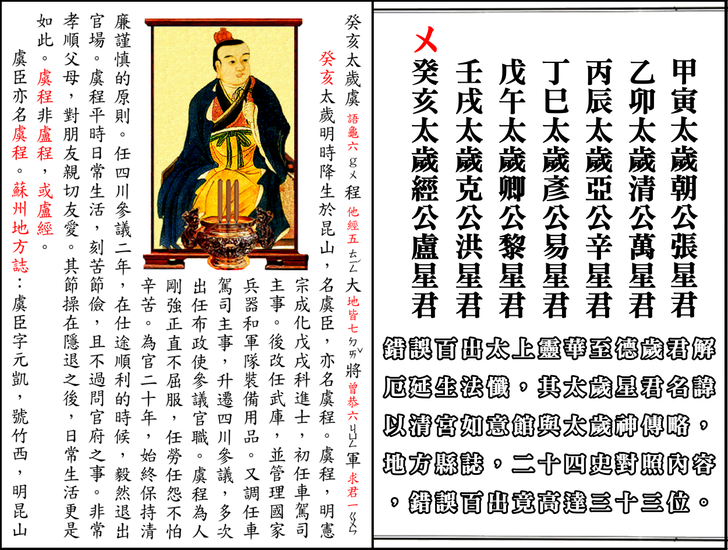 甲寅太歲朝公張星君
乙卯太歲清公萬星君
丙辰太歲亞公辛星君
丁巳太歲彥公易星君
戊午太歲卿公黎星君
壬戌太歲克公洪星君
㐅癸亥太歲經公盧星君
錯誤百出太上靈華至德歲君解
厄延生法懺，其太歲星君名諱
以清宮如意館與太歲神傳略，
地方縣誌，二十四史對照內容
，錯誤百出竟高達三十三位。
癸亥太歲虞語龜六gㄨ程他經五大地皆七將曾恭六軍求君一
癸亥太歲明時降生於昆山，名虞臣，亦名虞程。虞程，明憲
宗成化戊戌科進士，初任車駕司
主事。後改任武庫，並管理國家
兵器和軍隊裝備用品。又調任車
駕司主事，升遷四川參議，多次
出任布政使參議官職。虞程為人
剛強正直不屈服，任勞任怨不怕
辛苦。為官二十年，始終保持清
廉謹慎的原則。任四川參議二年，在仕途順利的時候，毅然退出
官場。虞程平時日常生活，刻苦節儉，且不過問官府之事。非常
孝順父母，對朋友親切友愛。其節操在隱退之後，日常生活更是
如此。虞程非盧程，或盧經。
虞臣亦名虞程。蘇州地方誌：虞臣字元凱，號竹西，明昆山